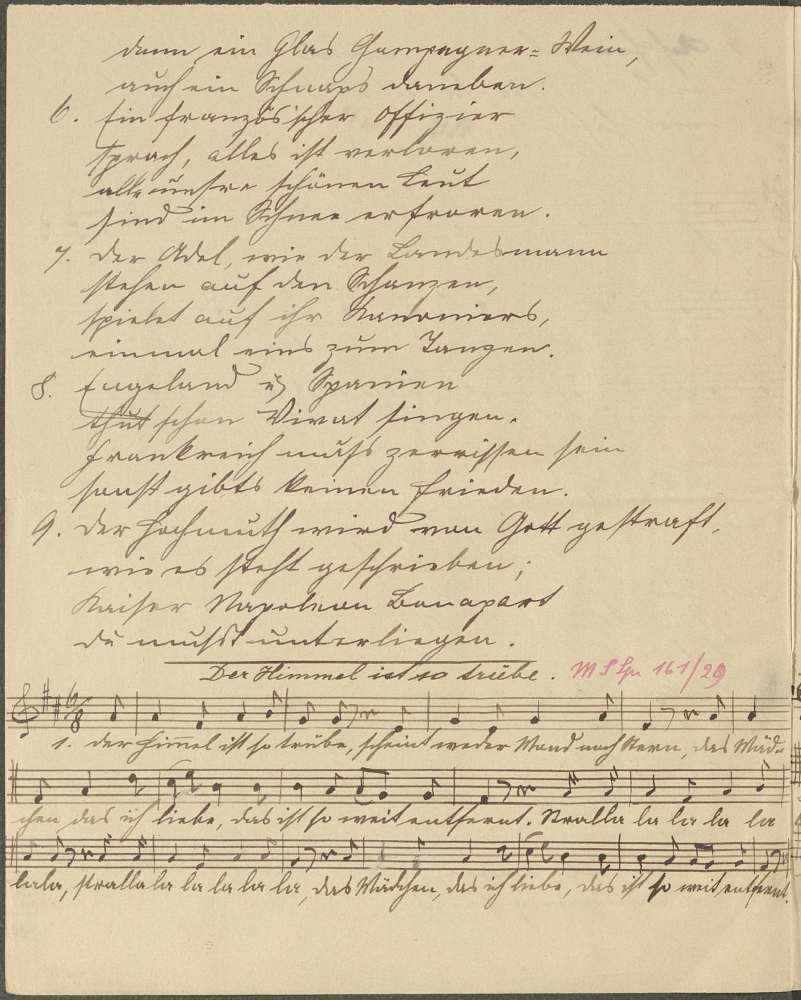 dann ein Glas Champagner-Wein,
auch ein Schnaps daneben.
6. Ein französ'scher Offizier
sprach, alles ist verloren,
alle unsre schönen Leut
sind im Schnee erfroren.
7. Der Adel, wie der Landesmann
stehen auf den Schanzen,
spielet auf ihr Kanoniers,
einmal eins zum Tanzen.
8. Engeland u. Spanien
thut schon Vivat singen.
Frankreich muß zerrissen sein
sonst gibts keinen Frieden.
9. Der Hochmuth wird von Gott gestraft,
wie es steht geschrieben;
Kaiser Napoleon Bonapart
du mußt unterliegen.
Der Himmel ist so trübe. 161/29
6/8
1. Der Himmel ist so trübe, scheint weder Mond noch Stern, das Mäd-
chen das ich liebe, das ist so weit entfernt. Stralla la la la la
lala, strallala la la la la, das Mädchen, das ich liebe, das ist so weit entfernt.